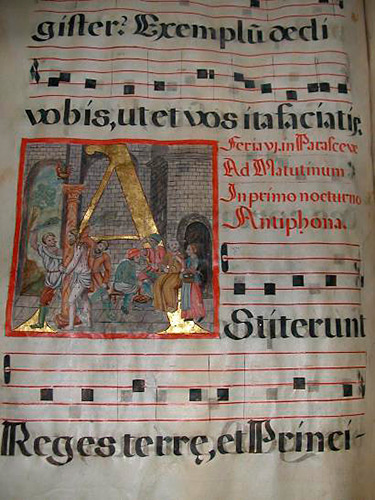 gister? Exemplũ dedi
vobis, ut et vos ita faciatis.
Feria vj. in Parasceve
Ad Matutinum
In primo nocturno
Antiphona.
A
Stiterunt
Reges terrę, et Princi-